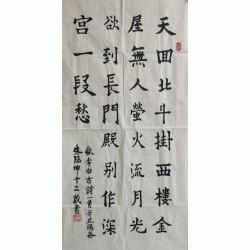 天回北斗掛西樓金
屋無人螢火流月光
欲到長門殿別作深
宮一段愁
錄李白古詩一首
坤十二敬書